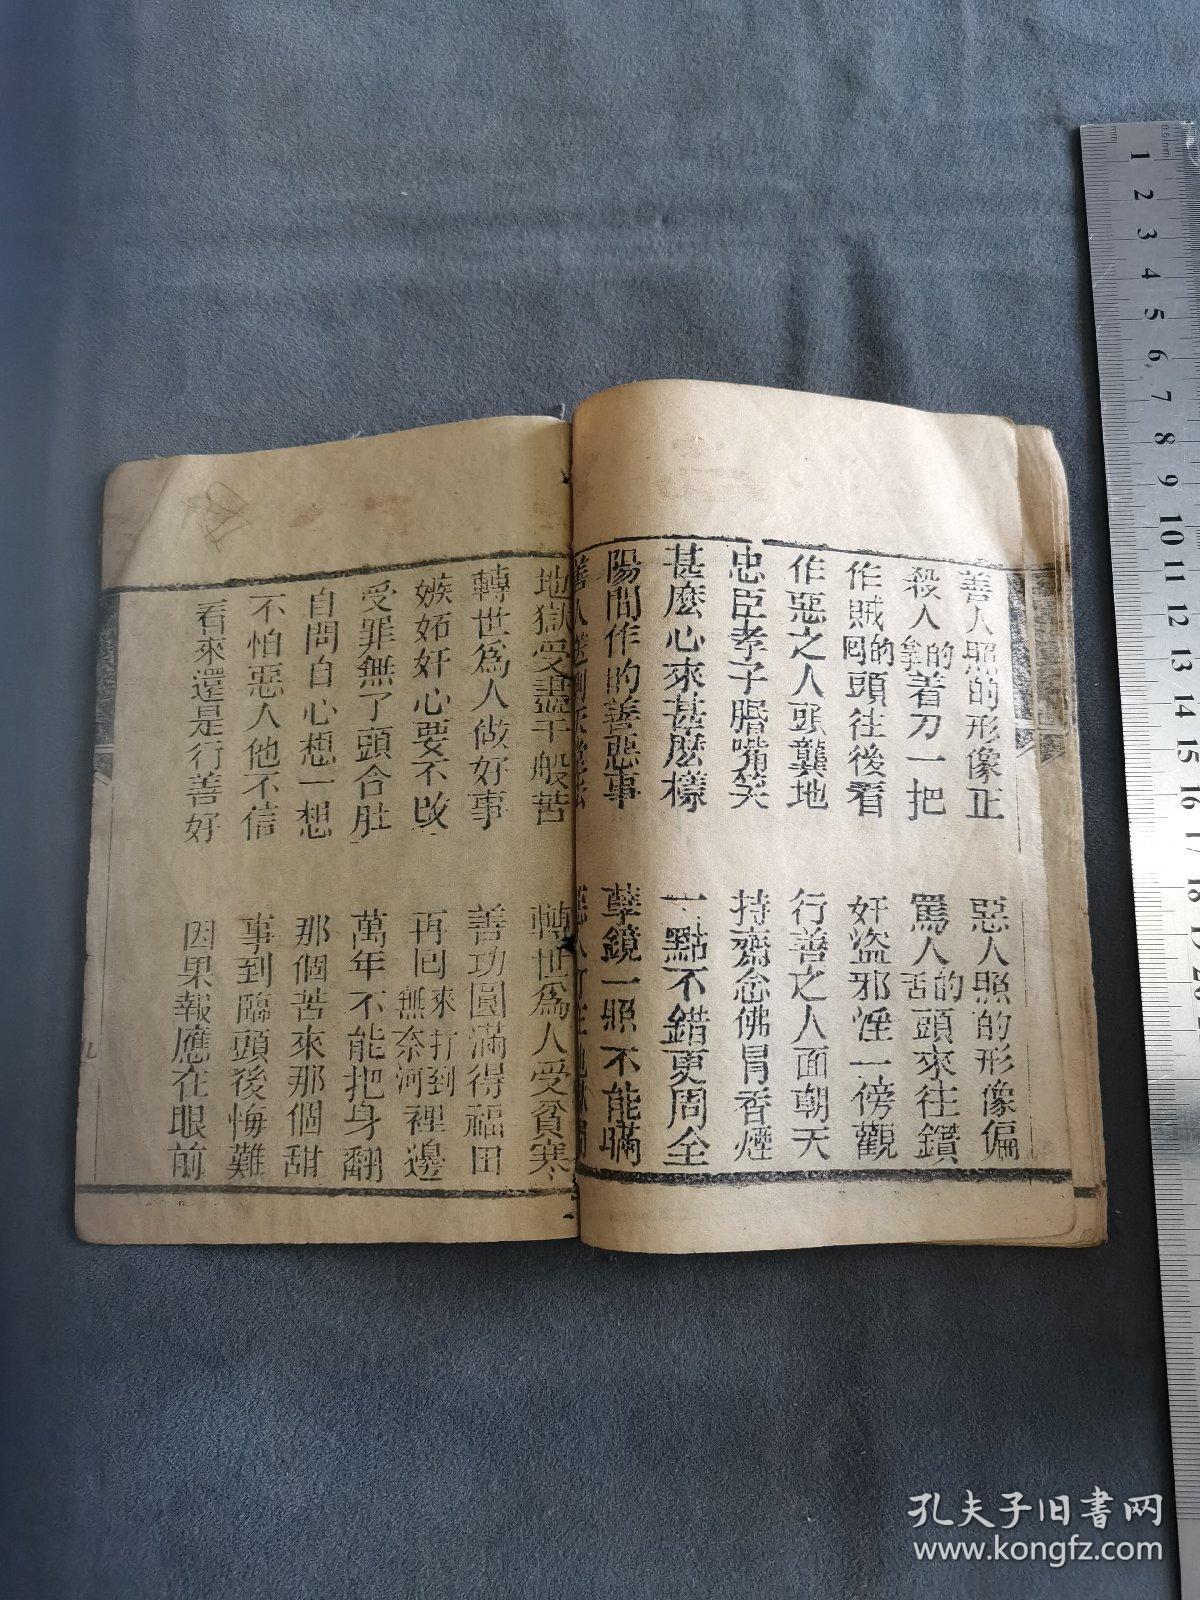 善人照的形像正 惡人照的形像偏
殺人的拿着刀一把 罵人的舌頭來往鑽
作賊的頭往後看 奸盜邪淫一傍觀
作惡之人頭龔地 行善之人面朝天
忠臣孝子唇嘴笑 持齋念佛冒香煙
甚麽心來甚麽樣 一點不錯更周全
陽間作的善惡事 孽鏡一照不能瞞
善人 惡人
地獄受盡千般苦 轉世爲人受貧寒
轉世爲人做好事 善功圓滿得福田
嫉妬奸心要不改 再回來打到無奈河裡邊
受罪無了頭合肚 萬年不能把身翻
自問自心想一想 那個苦來那個甜
不怕惡人他不信 事到臨頭後悔難
看來還是行善好 因果報應在眼前
九
1 2 3 4 5 6 7 8 9 10 11 12 13 14 15 16 17 18
孔夫子旧书网
www.kongfz.com